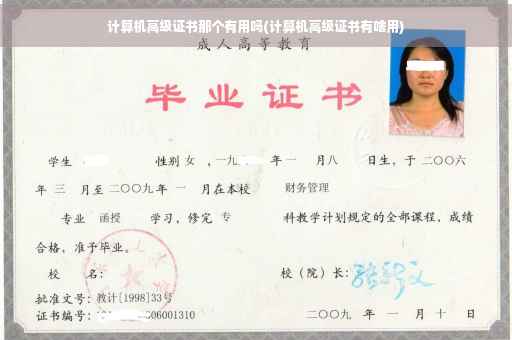 计算机高级证书那个有用吗(计算机高级证书有啥用)
成人高等教育
毕业证书
学生 性别 女 ，一九 年 一 月八 日生，于 二〇〇六
年 三 月至 二〇〇九 年 一 月在本校 财务管理
专业 函授 学习，修完 专 科教学计划规定的全部课程，成绩
合格，准予毕业。
校 名： 校（院）长：
批准文号：教计[1998]33号
证书编号： 06001310 二〇〇九 年 一 月 十 日